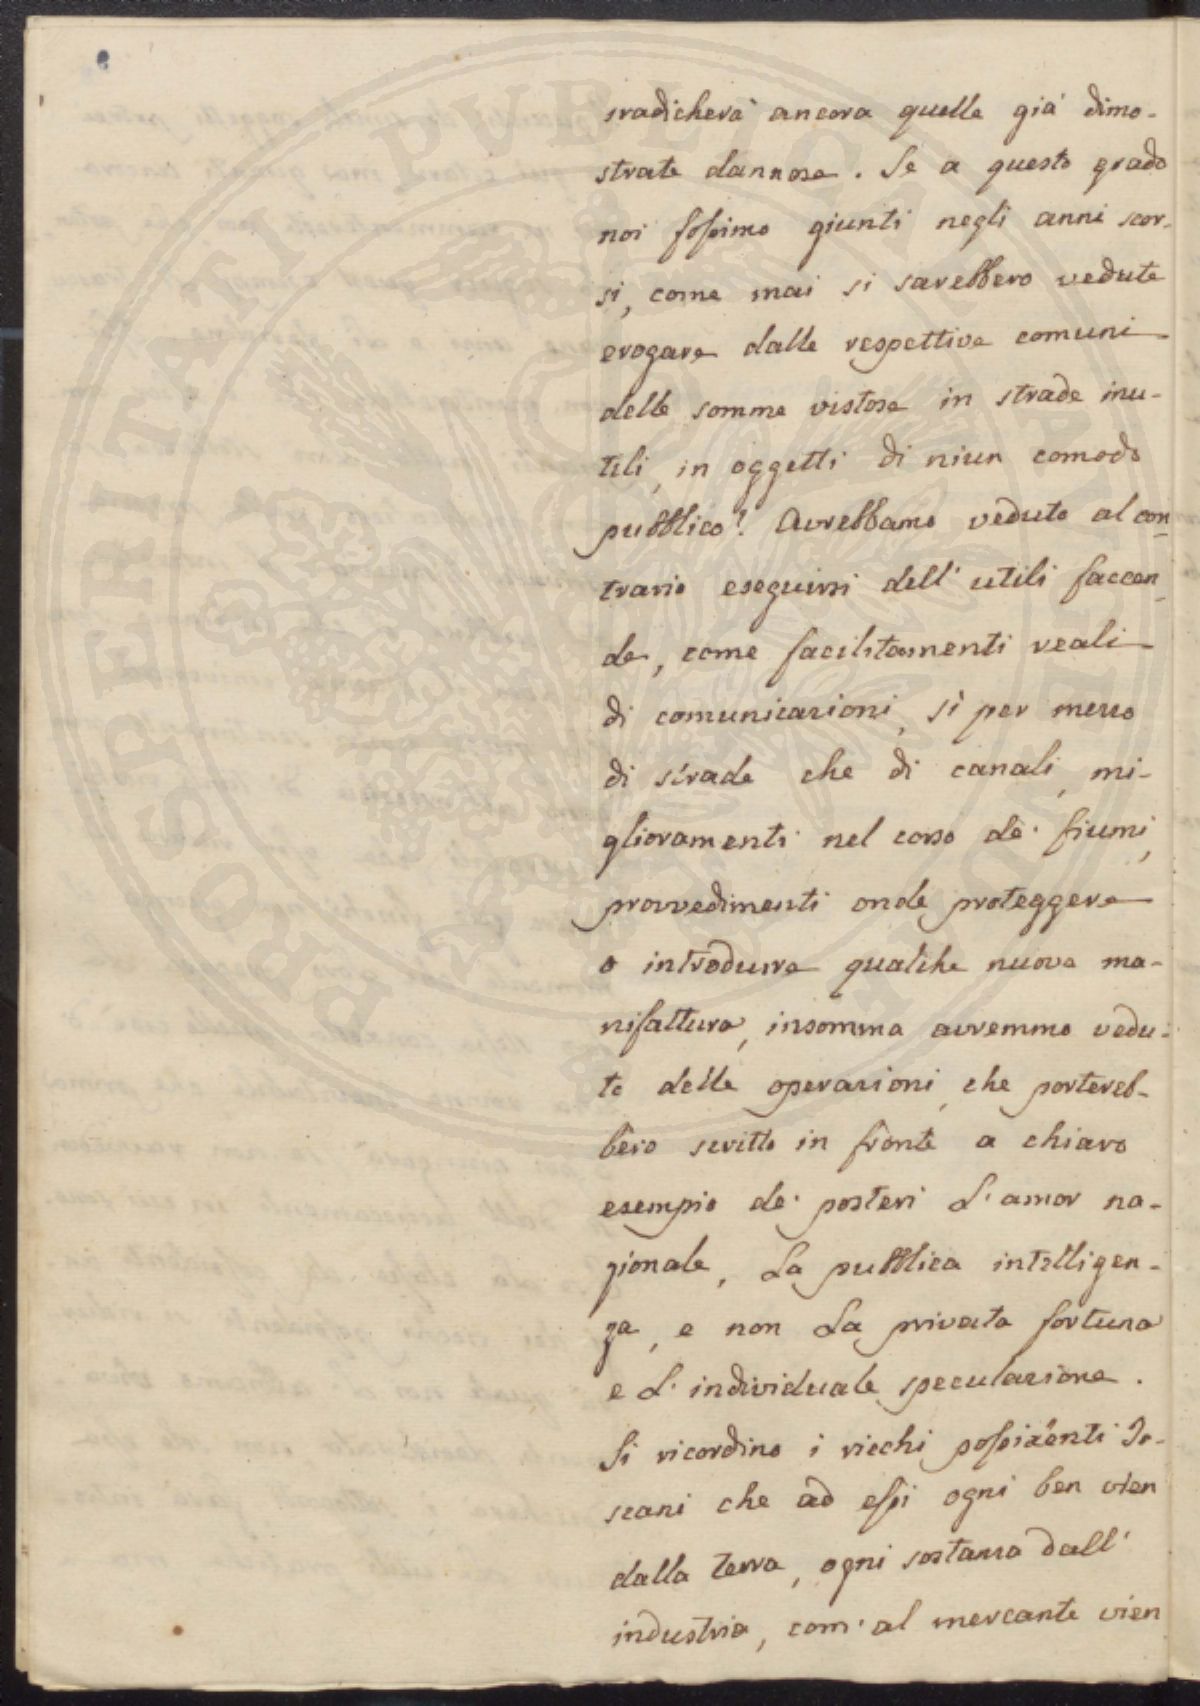 sradicherà ancora quelle già dimo-
strate dannose. Se a questo grado
noi fossimo giunti negli anni scor-
si, come mai si sarebbero vedute
erogare dalle respettive comuni
delle somme vistose in strade inu-
tili, in oggetti di niun comodo
pubblico! Avrebbamo veduto al con-
trario eseguirsi dell' utili faccen-
de, come facilitamenti reali
di comunicazioni, sì per mezzo
di strade che di canali, mi-
glioramenti nel corso de' fiumi,
provvedimenti onde proteggere
o introdurre qualche nuova ma-
nifattura, insomma avremmo vedu-
te delle operazioni, che portereb-
bero scritto in fronte a chiaro
esempio de' posteri L' amor na-
zionale, La pubblica intelligen-
za, e non La privata fortuna
e L' individuale speculazione.
Si ricordino i ricchi possidenti To-
scani che ad essi ogni ben vien
dalla terra, ogni sostanza dall'
industria, com' al mercante vien
PROSPERITATI PVBLICAE